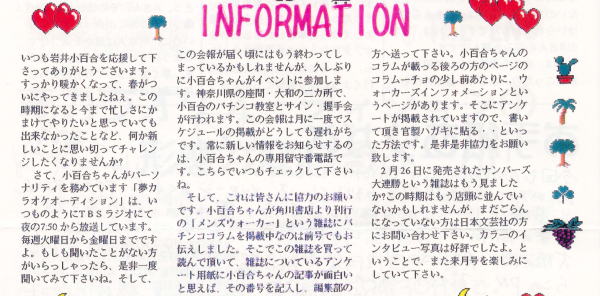 INFORMATION
いつも岩井小百合を応援して下
さってありがとうございます。
すっかり暖かくなって、春がつ
いにやってきましたねぇ。この
時期になると今まで忙しさにか
まけてやりたいと思っていても
出来なかったことなど、何か新
しいことに思い切ってチャレン
ジしたくなりませんか?
さて、小百合ちゃんがパーソ
ナリティを務めています「夢カ
ラオケオーディション」は、い
つものようにTBSラジオにて
夜の7:50から放送しています。
毎週火曜日から金曜日までです
よ。もしも聞いたことがない方
がいらっしゃったら、是非一度
聞いてみて下さいね。そして、
この会報が届く頃にはもう終わってし
まっているかもしれませんが、久しぶり
に小百合ちゃんがイベントに参加しま
す。神奈川県の座間・大和の二カ所で、
小百合のパチンコ教室とサイン・握手会
が行われます。この会報は月に一度でス
ケジュールの掲載がどうしても遅れがち
です。常に新しい情報をお知らせするの
は、小百合ちゃんの専用留守番電話で
す。こちらでいつもチェックして下さい
ね。
そして、これは皆さんに協力のお願い
です。小百合ちゃんが角川書店より刊行
の「メンズウォーカー」という雑誌にパ
チンココラムを掲載中なのは前号でもお
伝えしました。そこでこの雑誌を買って
読んで頂いて、雑誌についているアンケ
ート用紙に小百合ちゃんの記事が面白い
と思えば、その番号を記入し、編集部の
方へ送って下さい。小百合ちゃんの
コラムが載ってる後ろの方のページの
コラムーチョの少し前あたりに、ウ
ォーカーズインフォメーションとい
うページがあります。そこにアンケ
ートが掲載されていますので、書い
て頂き官製ハガキに貼る・・といっ
た方法です。是非是非協力をお願い
致します。
2月26日に発売されたナンバーズ
大連勝という雑誌はもう見ました
か?この時期はもう店頭に並んでい
ないかもしれませんが、まだごらん
になっていない方は日本文芸社の方
にお問い合わせ下さい。カラーのイ
ンタビュー写真は好評でしたよ。と
いうことで、また来月号を楽しみに
していて下さい。